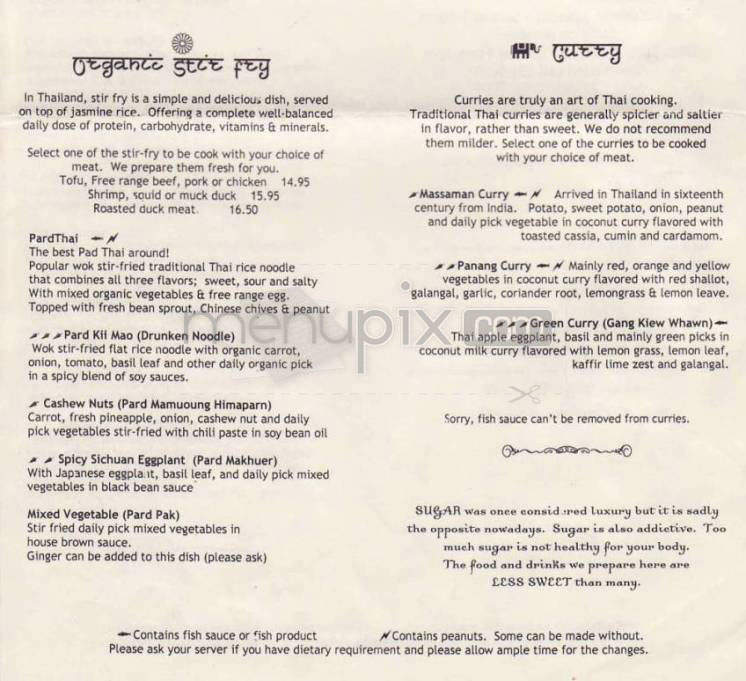 Organic Stir Fry
In Thailand, stir fry is a simple and delicious dish, served
on top of jasmine rice. Offering a complete well-balanced
daily dose of protein, carbohydrate, vitamins & minerals.
Select one of the stir-fry to be cook with your choice of
meat. We prepare them fresh for you.
Tofu, Free range beef, pork or chicken 14.95
Shrimp, squid or muck duck 15.95
Roasted duck meat. 16.50
PardThai
The best Pad Thai around!
Popular wok stir-fried traditional Thai rice noodle
that combines all three flavors; sweet, sour and salty
With mixed organic vegetables & free range egg.
Topped with fresh bean sprout, Chinese chives & peanut
Pard Kii Mao (Drunken Noodle)
Wok stir-fried flat rice noodle with organic carrot,
onion, tomato, basil leaf and other daily organic pick
in a spicy blend of soy sauces.
Cashew Nuts (Pard Mamuoung Himaparn)
Carrot, fresh pineapple, onion, cashew nut and daily
pick vegetables stir-fried with chili paste in soy bean oil
Spicy Sichuan Eggplant (Pard Makhuer)
With Japanese eggplant, basil leaf, and daily pick mixed
vegetables in black bean sauce
Mixed Vegetable (Pard Pak)
Stir fried daily pick mixed vegetables in
house brown sauce.
Ginger can be added to this dish (please ask)
Curry
Curries are truly an art of Thai cooking.
Traditional Thai curries are generally spicier and saltier
in flavor, rather than sweet. We do not recommend
them milder. Select one of the curries to be cooked
with your choice of meat.
Massaman Curry Arrived in Thailand in sixteenth
century from India. Potato, sweet potato, onion, peanut
and daily pick vegetable in coconut curry flavored with
toasted cassia, cumin and cardamom.
Panang Curry Mainly red, orange and yellow
vegetables in coconut curry flavored with red shallot,
galangal, garlic, coriander root, lemongrass & lemon leave.
Green Curry (Gang Kiew Whawn)
Thai apple eggplant, basil and mainly green picks in
coconut milk curry flavored with lemon grass, lemon leaf,
kaffir lime zest and galangal.
Sorry, fish sauce can't be removed from curries.
SUGAR was once considered luxury but it is sadly
the opposite nowadays. Sugar is also addictive. Too
much sugar is not healthy for your body.
The food and drinks we prepare here are
LESS SWEET than many.
Contains fish sauce or fish product Contains peanuts. Some can be made without.
Please ask your server if you have dietary requirement and please allow ample time for the changes.
menupix.com